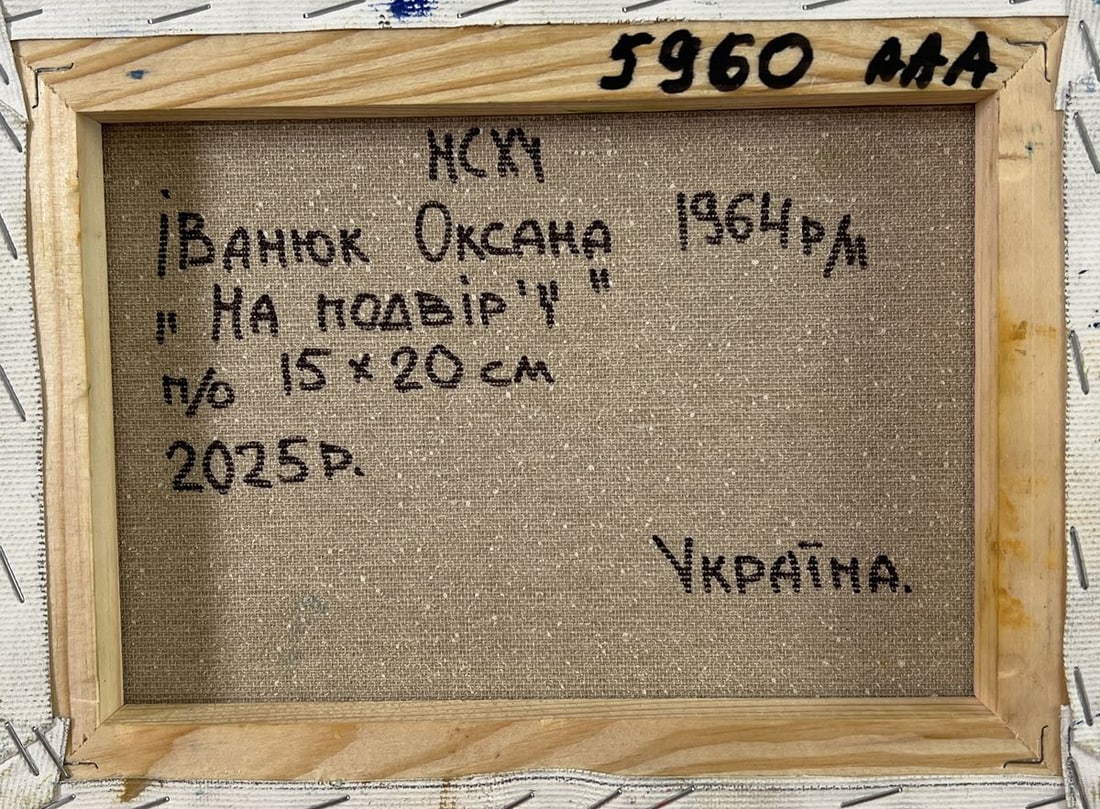 5960 AAA
НСХУ
Іванюк Оксана 1964 р/м
„ На подвір'ї "
п/о 15 x 20 см
2025 р.
Україна.